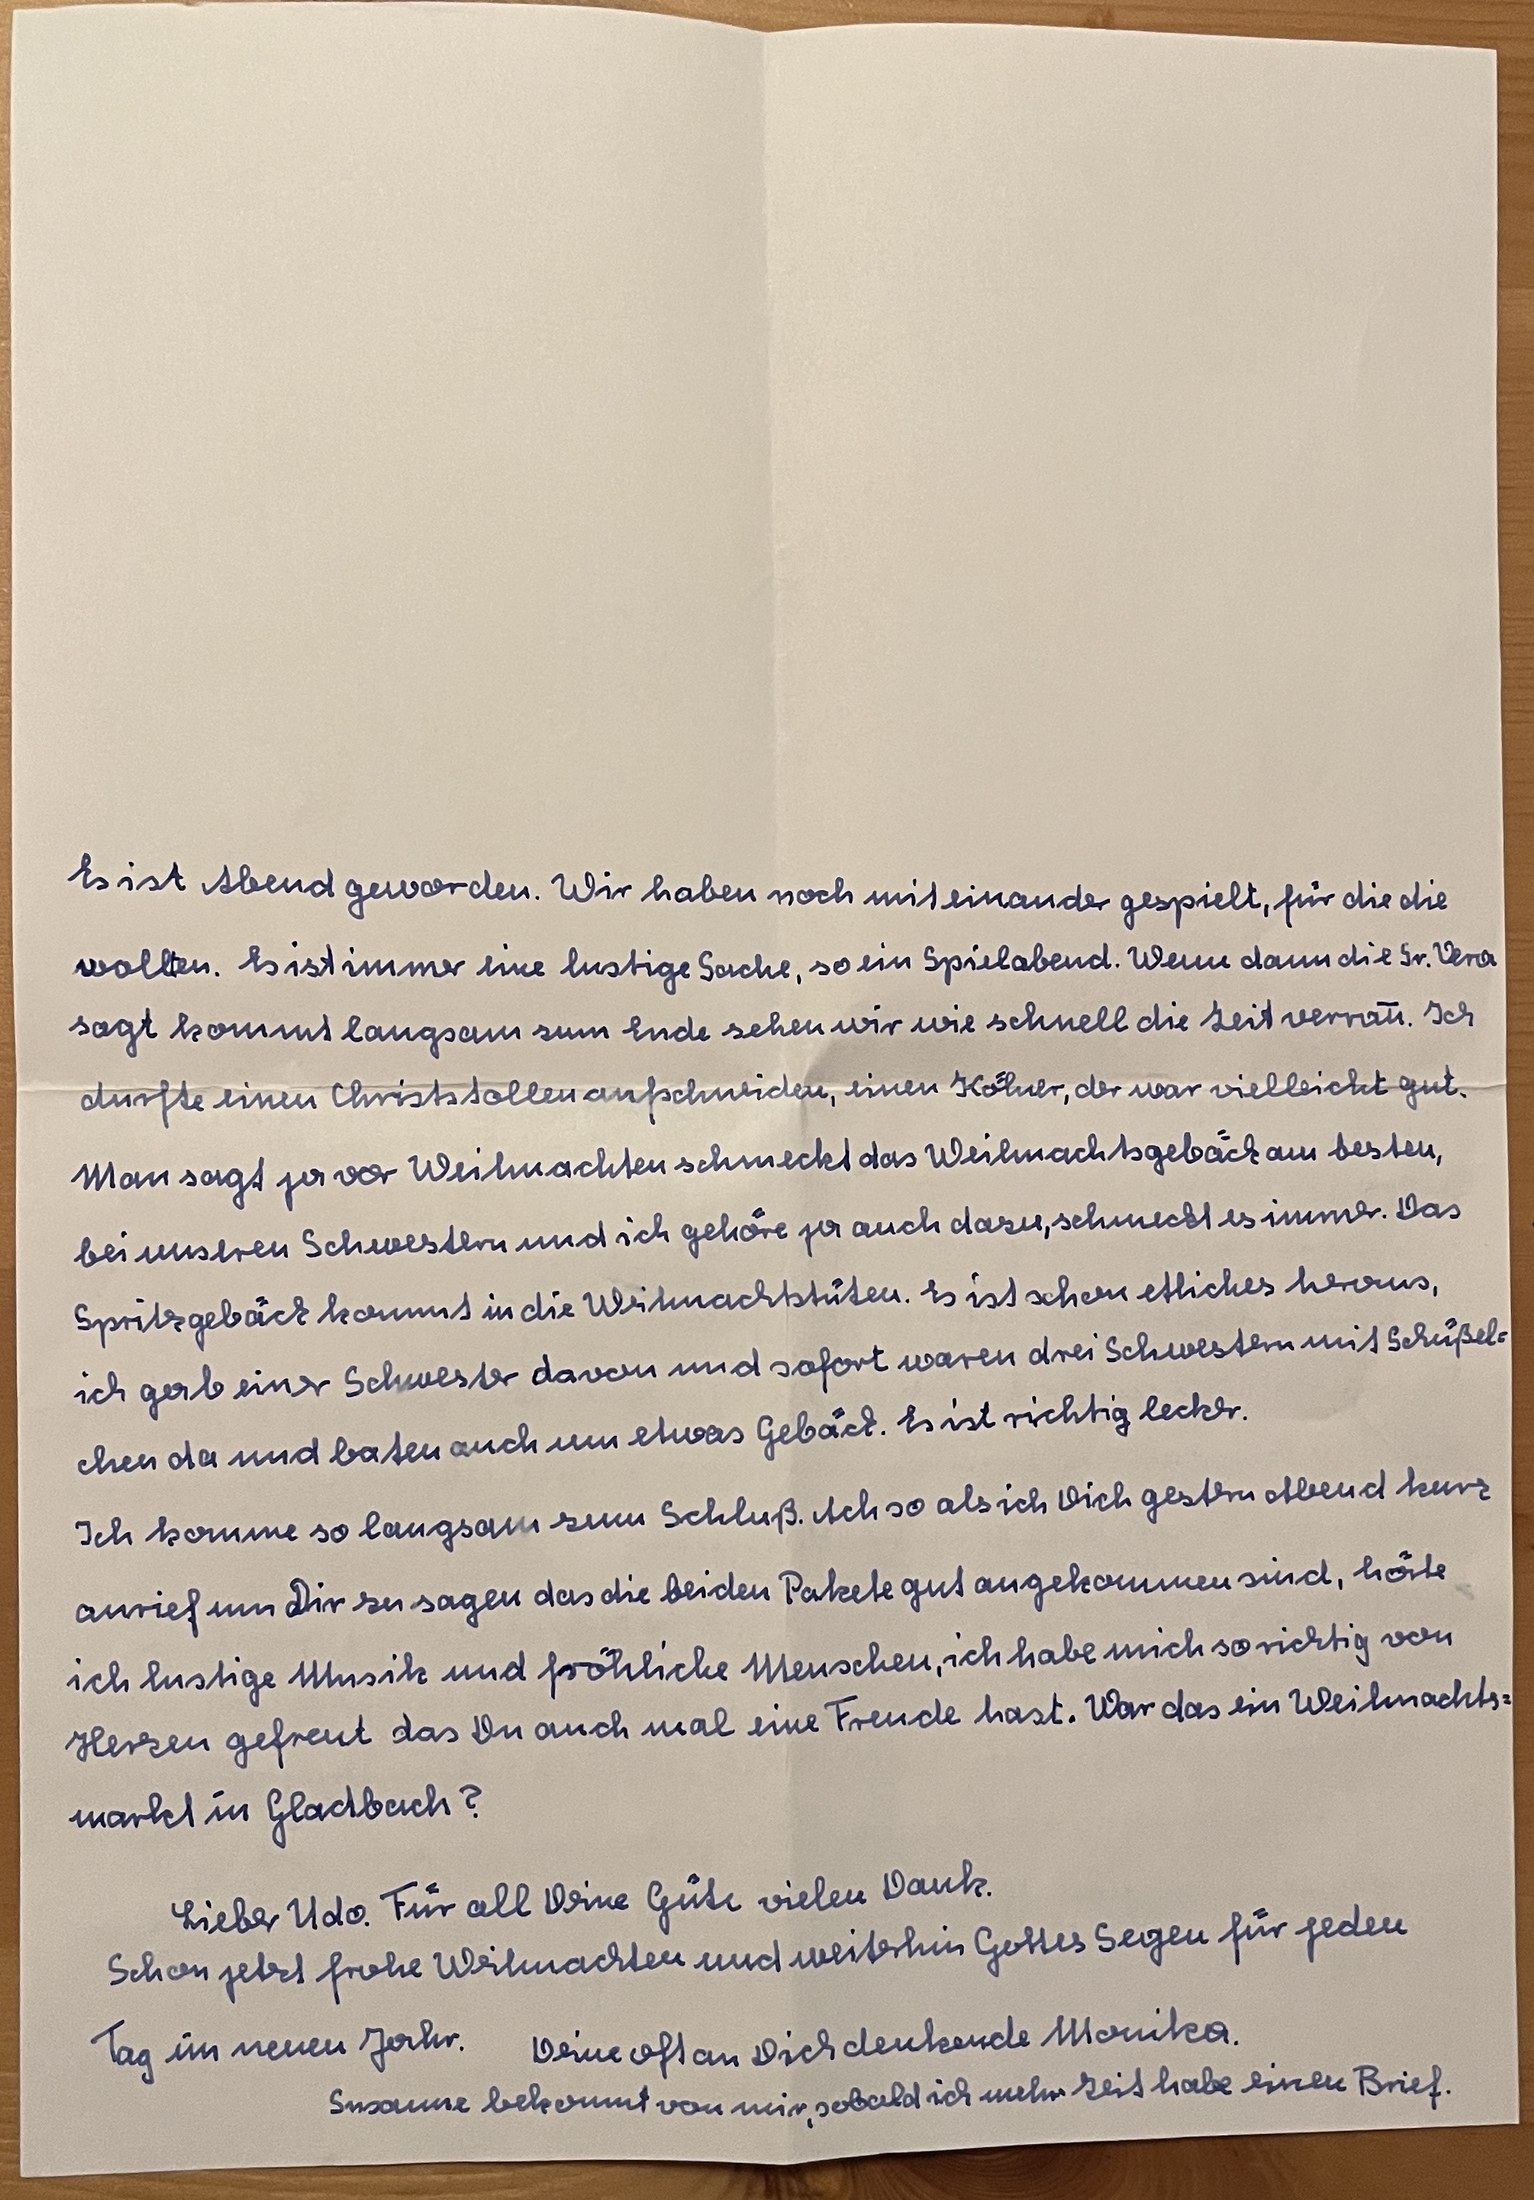 Es ist Abend geworden. Wir haben noch miteinander gespielt, für die die
wollten. Es ist immer eine lustige Sache, so ein Spielabend. Wenn dann die Sr. Vera
sagt kommt langsam zum Ende sehen wir wie schnell die Zeit verrañ. Ich
durfte einen Christstollen aufschneiden, einen Kölner, der war vielleicht gut.
Man sagt ja vor Weihnachten schmeckt das Weihnachtsgebäck am besten,
bei unseren Schwestern und ich gehöre ja auch dazu, schmeckt es immer. Das
Spritzgebäck kommt in die Weihnachtstüten. Es ist schon etliches heraus,
ich gab einer Schwester davon und sofort waren drei Schwestern mit Schüßel=
chen da und baten auch um etwas Gebäck. Es ist richtig lecker.
Ich komme so langsam zum Schluß. Ach so als ich Dich gestern Abend kurz
anrief um Dir zu sagen das die beiden Pakete gut angekommen sind, hörte
ich lustige Musik und fröhliche Menschen, ich habe mich so richtig von
Herzen gefreut das Du auch mal eine Freude hast. War das ein Weihnachts=
markt in Gladbach?
Lieber Udo. Für all Deine Güte vielen Dank.
Schon jetzt frohe Weihnachten und weiterhin Gottes Segen für jeden
Tag im neuen Jahr. Deine oft an Dich denkende Monika.
Susanne bekommt von mir, sobald ich mehr Zeit habe einen Brief.